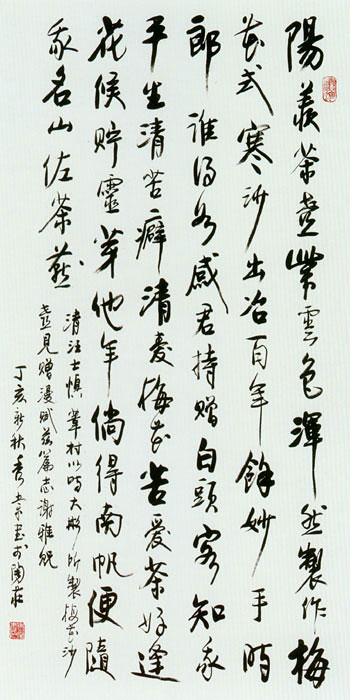 陽羨茶壺紫雲色渾然製作梅
花式寒沙出冶百年餘妙手時
郎誰得如感君持贈白頭客知我
平生清苦癖清愛梅花苦愛茶好逢
花候貯靈芽他年倘得南帆便隨
我名山佐茶燕
清汪士慎葦村以時大彬所製梅花沙
壺見贈漫賦茲篇志謝雅貺
丁亥新秋